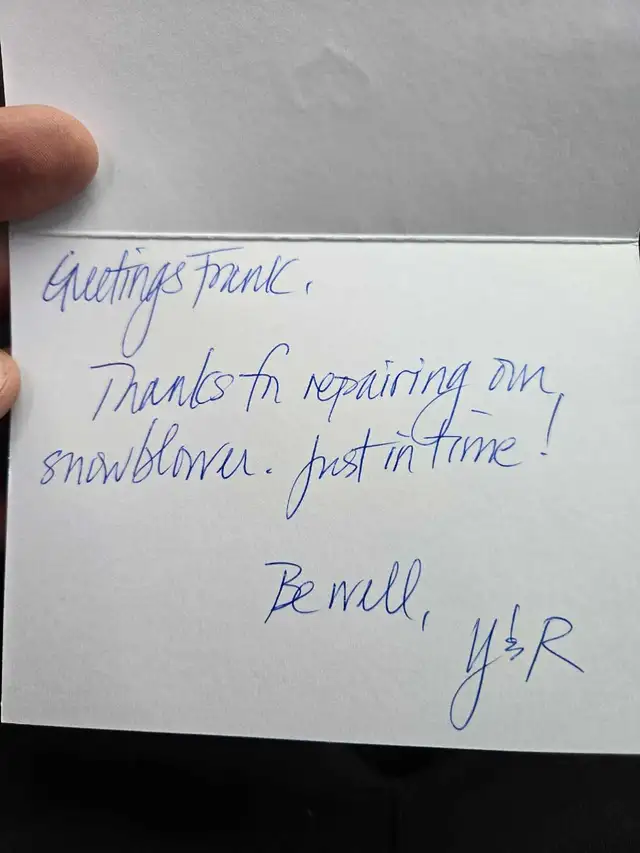 Greetings Frank.
Thanks for repairing our
snowblower. Just in time!
Be well,
Y&R